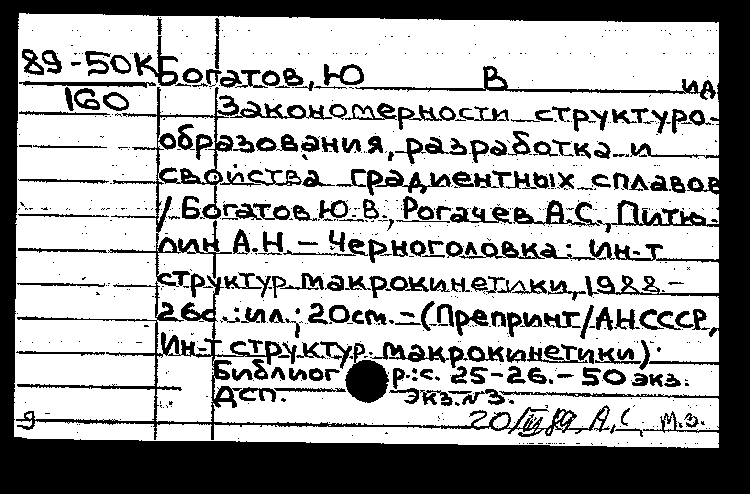 89-50К Богатов, Ю В ид
160 Закономерности структуро-
образования, разработка и
свойства градиентных сплавов
/ Богатов Ю.В., Рогачев А.С., Питю-
лин А.Н. – Черноголовка: Ин-т
структур. макрокинетики, 1988. –
26с.:ил.; 20см. – (Препринт/АНСССР,
Ин-т структур. макрокинетики).
Библиогр.: с. 25-26. – 50 экз.
ДСП. экз. №3.
9 89 А.С. м.з.